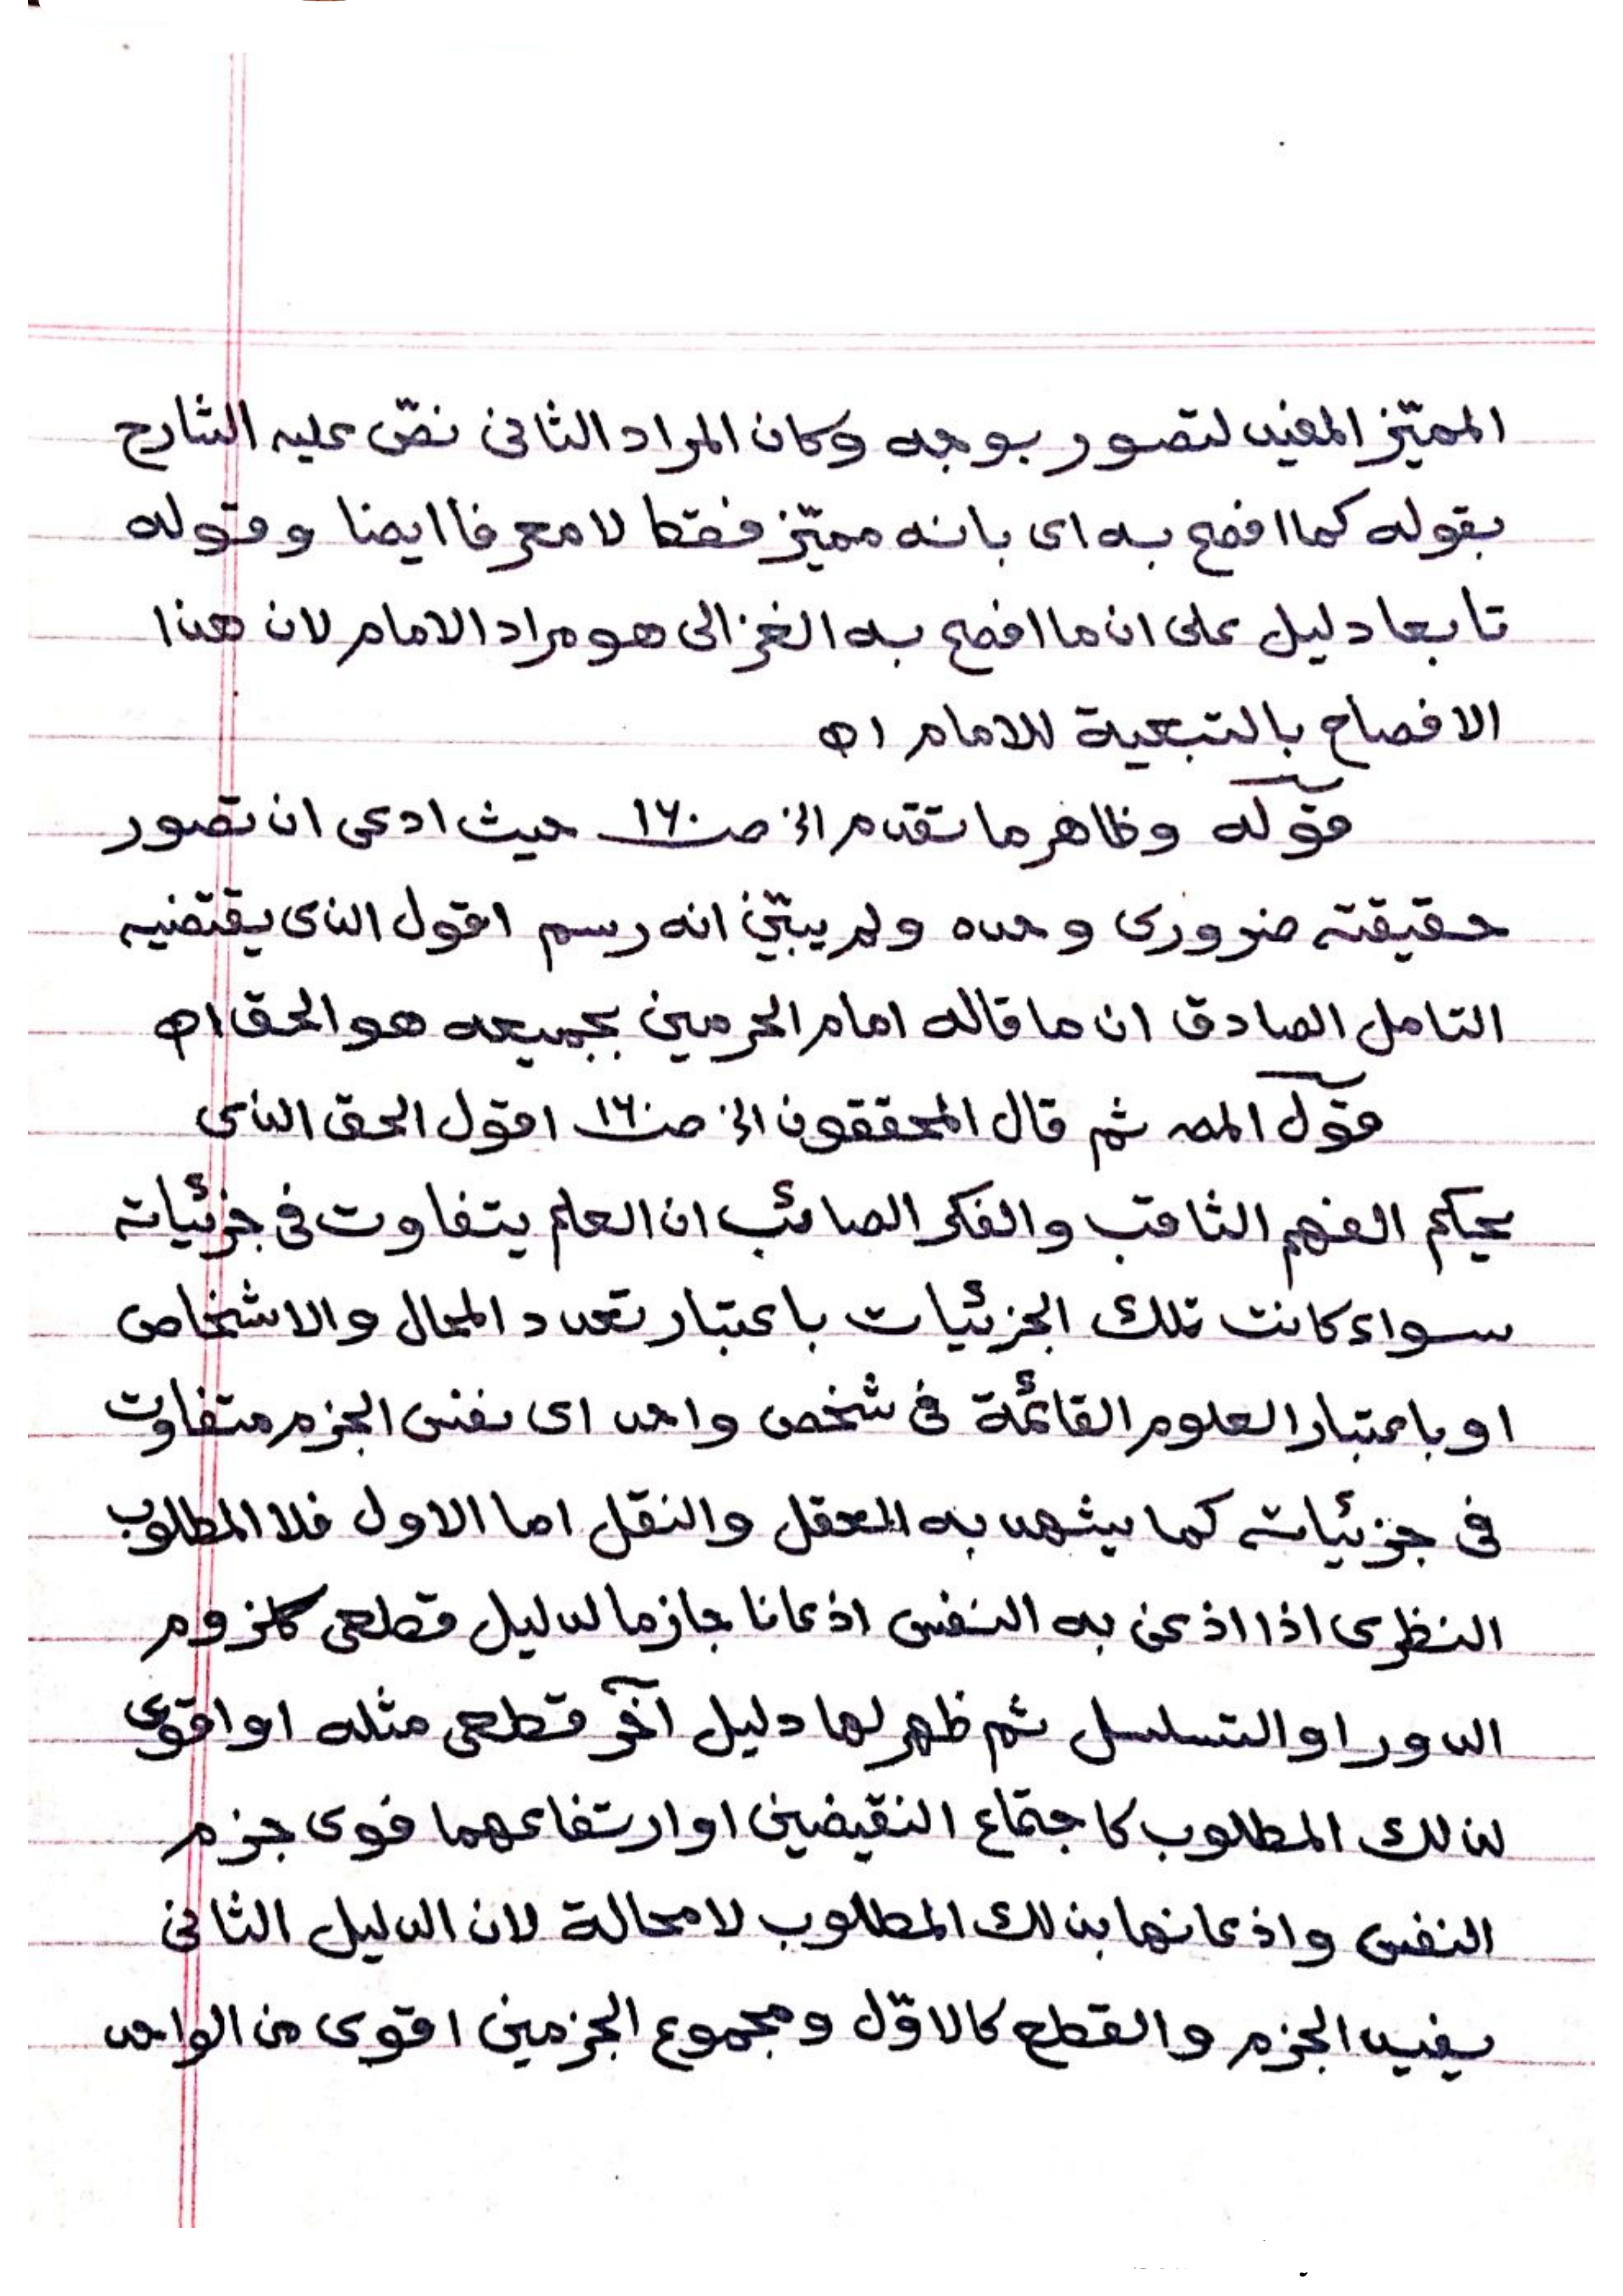 المميّز المفيد لتصور بوجه وكان المراد الثانى نصّ عليه الشارح
بقوله كما افصح به اى بانه مميّز فقط لا معرفا ايضا وقوله
تابعا دليل على ان ما افصح به الغزالى هو مراد الامام لان هذا
الافصاح بالتبعية للامام اه
قوله وظاهر ما تقدم الخ صـ١٦٠ حيث ادعى ان تصور
حقيقته ضرورى وحده ولم يبيّن انه رسم اقول الذى يقتضيه
التامل الصادق ان ما قاله امام الحرمين بجميعه هو الحق اه
قول المص ثم قال المحققون الخ صـ١٦٠ اقول الحق الذى
يحكم الفهم الثاقب والفكر الصائب ان العلم يتفاوت فى جزئياته
سواء كانت تلك الجزئيات باعتبار تعدد المحال والاشخاص
او باعتبار العلوم القائمة فى شخص واحد اى نفس الجزم متفاوت
فى جزئياته كما يشهد به العقل والنقل اما الاول فلا المطلوب
النظرى اذا اذعن به النفس اذعانا جازما لدليل قطعى كلزوم
الدور او التسلسل ثم ظهر لها دليل آخر قطعى مثله او اقوى
لذلك المطلوب كاجتماع النقيضين او ارتفاعهما قوى جزم
النفس واذعانها بذلك المطلوب لا محالة لان الدليل الثانى
يفيد الجزم والقطع كالاوّل ومجموع الجزمين اقوى من الواحد